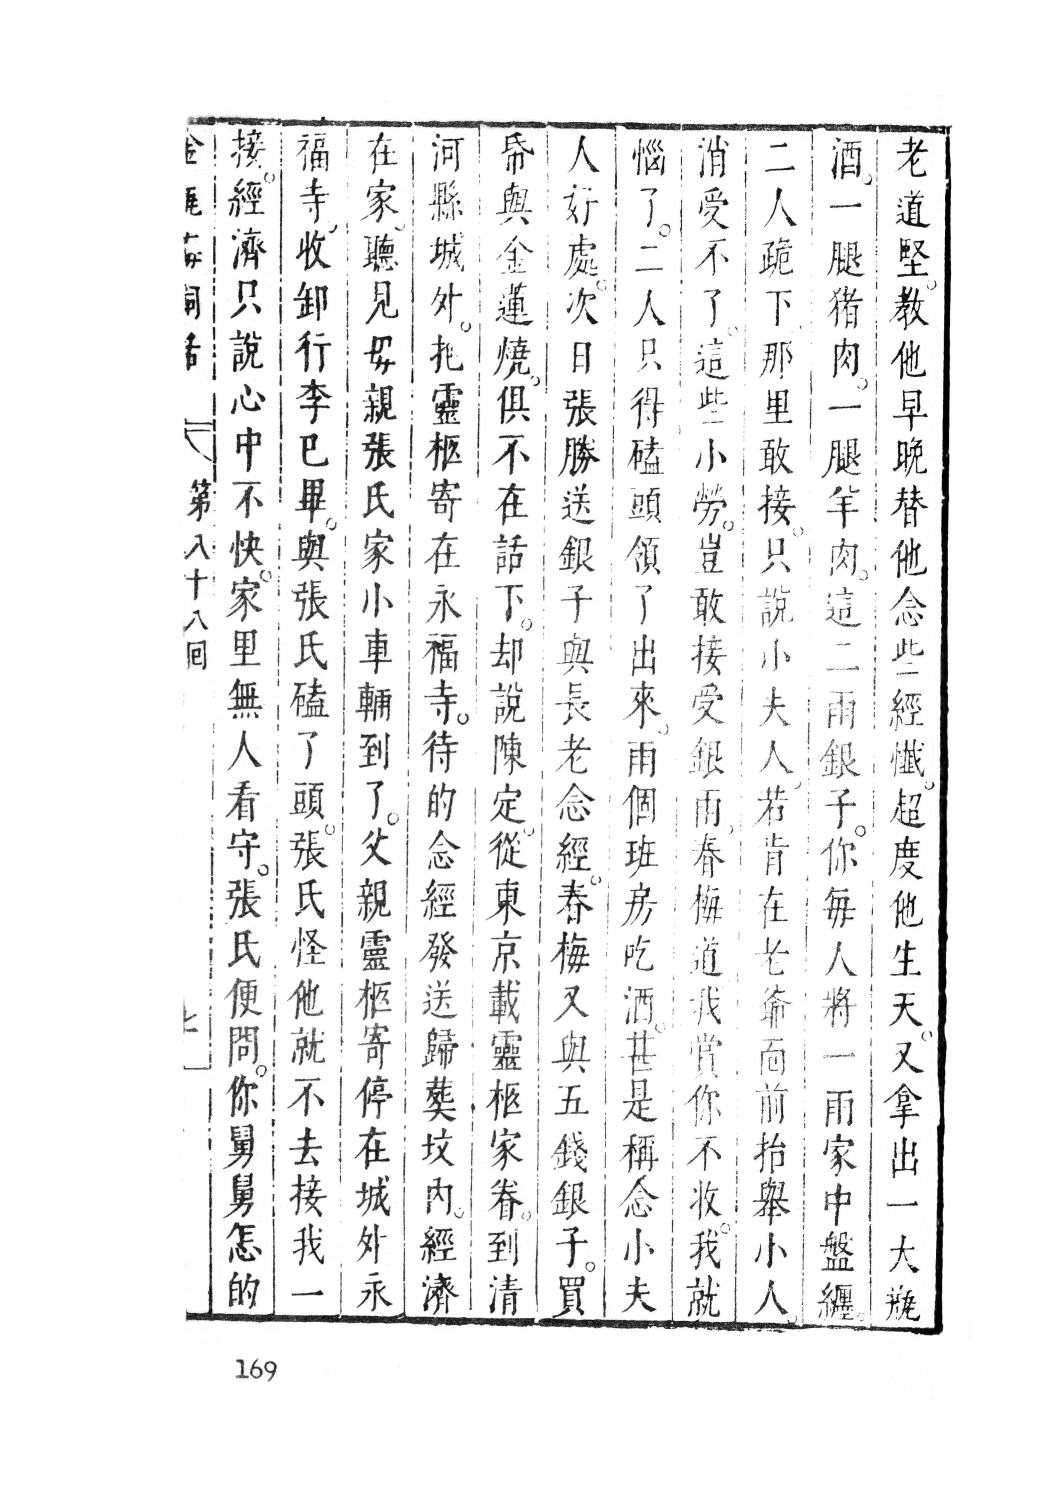 老道堅。教他早晚替他念些經懺。超度他生天。又拿出一大甁
酒。一腿猪肉。一腿羊肉。這二兩銀子。你每人將一兩家中盤纏。
二人跪下。那里敢接。只說小夫人。若肯在老爺面前抬舉小人。
消受不了。這些小勞。豈敢接受銀兩。春梅道我賞你不收。我就
惱了。二人只得磕頭領了出來。兩個班房吃酒。甚是稱念小夫
人好處。次日張勝送銀子與長老念經。春梅又與五錢銀子。買
帋與金蓮燒。俱不在話下。却說陳定。從東京載靈柩家眷。到清
河縣城外。把靈柩寄在永福寺。待的念經發送歸葬坟內。經濟
在家。聽見母親張氏家小車輛到了。父親靈柩寄停在城外永
福寺。收卸行李已畢。與張氏磕了頭。張氏怪他就不去接我一
接。經濟只說心中不快。家里無人看守。張氏便問。你舅舅怎的
金瓶梅詞話 第八十八回 七
169